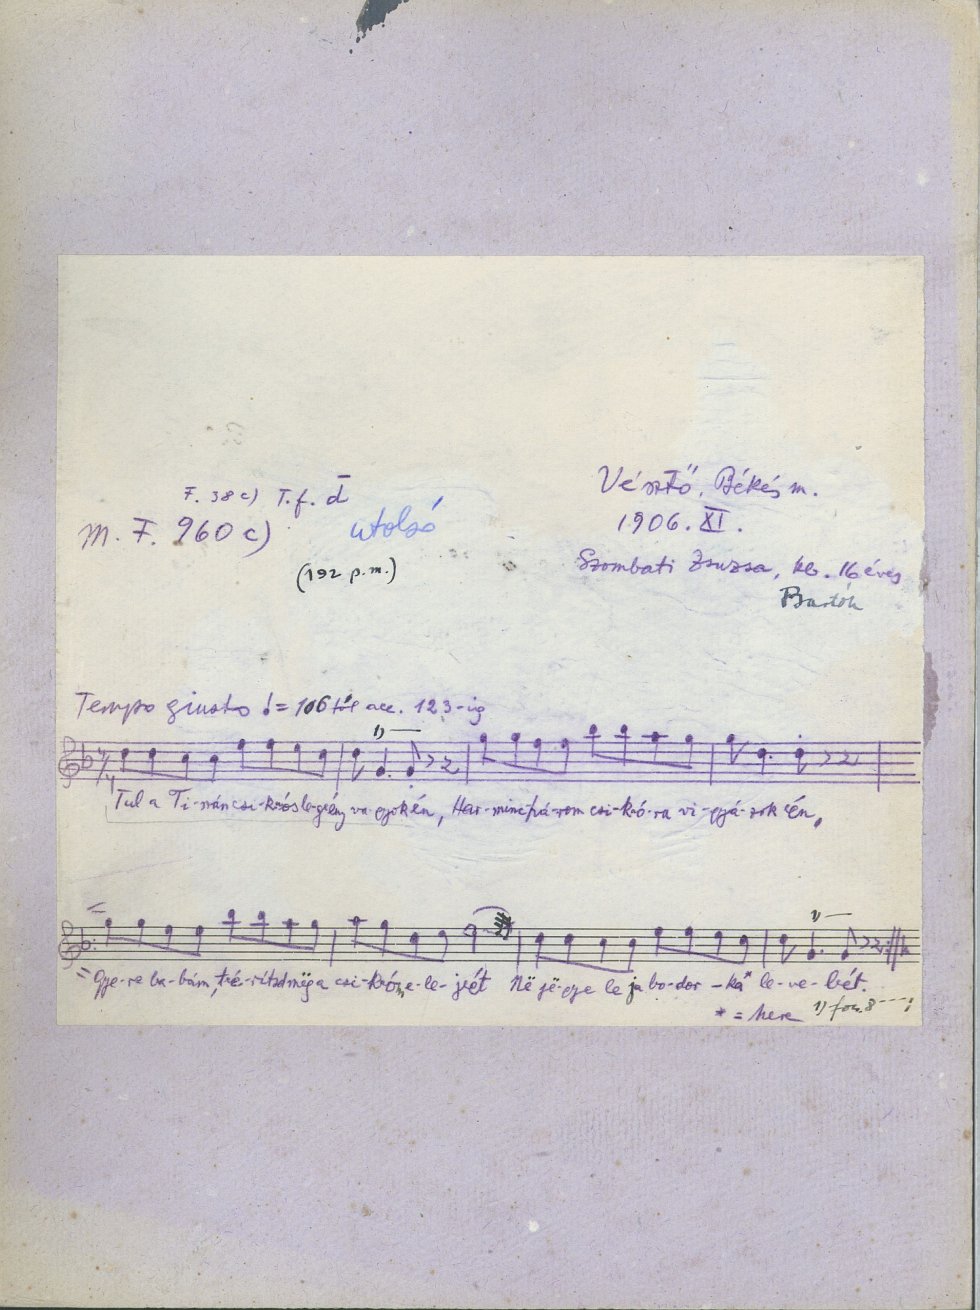 F. 38 c) T.f. d̄
M. F. 960 c)
utolsó
(192 p.m.)
Vésztő, Békés m.
1906. XI.
Szombati Zsuzsa, kb. 16 éves
Bartók
Tempo giusto ♩= 106 tól acc. 123-ig
1)
Tul a Ti-szán csi-kós le-gény va-gyok én, Har-minchá-rom csi-k-ó-ra vi-gyá-zok én,
1)
Gye-re ba-bám, té-ritsd még a csi-kóm e-le-jét Në jë-gye le ja bo-dor-ka* le-ve-lét.
* = here